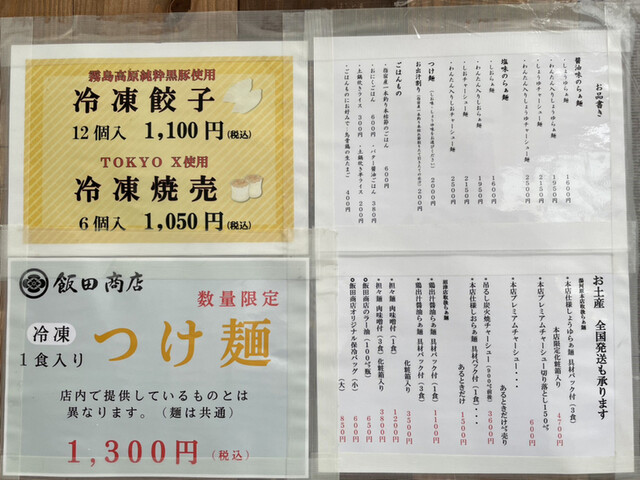 霧島高原純粋黒豚使用
冷凍餃子
12個入 1,100円(税込)
TOKYO X使用
冷凍焼売
6個入 1,050円(税込)
飯田商店
数量限定
冷凍
1食入り
つけ麺
店内で提供しているものとは
異なります。（麺は共通）
1,300円（税込）
お品書き
醤油味のらぁ麺
・しょうゆらぁ麺 1600円
・わんたん入りしょうゆらぁ麺 1950円
・しょうゆチャーシュー麺 2150円
・わんたん入りしょうゆチャーシュー麺 2500円
塩味のらぁ麺
・しおらぁ麺 1600円
・わんたん入りしおらぁ麺 1950円
・しおチャーシュー麺 2150円
・わんたん入りしおチャーシュー麺 2500円
つけ麺 2000円
お出汁割り
ごはんもの
・おにくごはん 600円
・バター醤油ごはん 380円
・土鍋炊きライス 300円
・土鍋炊き半ライス 200円
・ごはんものにお好みで 烏骨鶏の生たまご 400円
お土産 全国発送も承ります
湯河原本店取扱らぁ麺
・本店仕様しょうゆらぁ麺 具材パック付（3食）
本店限定化粧箱入り 4700円
・本店プレミアムチャーシュー切り落とし150g 600円
・本店プレミアムチャーシュー・・・
あるときだけ量り売り
・吊るし炭火焼チャーシュー 3600円
・本店仕様しおらぁ麺 具材パック付（1食）・・・ 1500円
あるときだけ
沼津店取扱らぁ麺
・鶏出汁醤油らぁ麺 具材パック付（1食） 1100円
・鶏出汁醤油らぁ麺 具材パック付（3食）
化粧箱入り 3500円
・担々麺 肉味噌付（1食） 1200円
・担々麺 肉味噌付（3食）化粧箱入り 3800円
飯田商店のラー油（100g瓶） 650円
飯田商店オリジナル保冷バッグ（小） 650円
（大） 850円